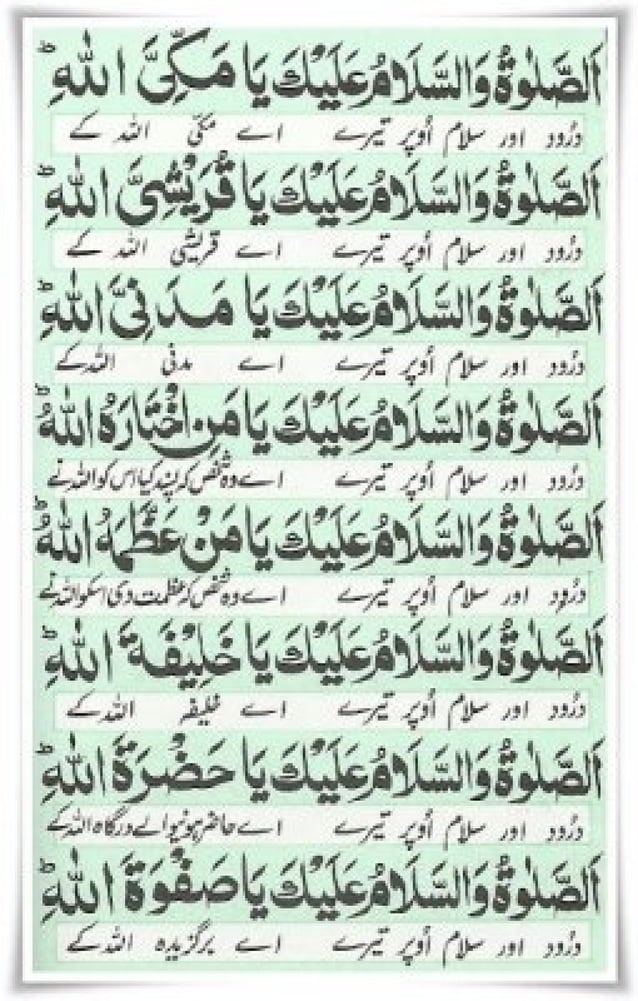 اَلصَّلٰوةُ وَالسَّلَامُ عَلَيْكَ يَا مَكِّىَّ اللهِ
دُرُود اور سلام اُوپر تیرے اے مکّی اللہ کے
اَلصَّلٰوةُ وَالسَّلَامُ عَلَيْكَ يَا قُرَيْشِىَّ اللهِ
دُرُود اور سلام اُوپر تیرے اے قریشی اللہ کے
اَلصَّلٰوةُ وَالسَّلَامُ عَلَيْكَ يَا مَدَنِىَّ اللهِ
دُرُود اور سلام اُوپر تیرے اے مدنی اللہ کے
اَلصَّلٰوةُ وَالسَّلَامُ عَلَيْكَ يَا مَنِ اخْتَارَهُ اللهُ
دُرُود اور سلام اُوپر تیرے اے وہ شخص کہ پسند کیا اس کو اللہ نے
اَلصَّلٰوةُ وَالسَّلَامُ عَلَيْكَ يَا مَنْ عَظَّمَهُ اللهُ
دُرُود اور سلام اُوپر تیرے اے وہ شخص کہ عظمت دی اسکو اللہ نے
اَلصَّلٰوةُ وَالسَّلَامُ عَلَيْكَ يَا خَلِيْفَةَ اللهِ
دُرُود اور سلام اُوپر تیرے اے خلیفہ اللہ کے
اَلصَّلٰوةُ وَالسَّلَامُ عَلَيْكَ يَا حَضْرَةَ اللهِ
دُرُود اور سلام اُوپر تیرے اے حاضر ہونیوالے درگاہ اللہ کے
اَلصَّلٰوةُ وَالسَّلَامُ عَلَيْكَ يَا صَفْوَةَ اللهِ
دُرُود اور سلام اُوپر تیرے اے برگزیدہ اللہ کے